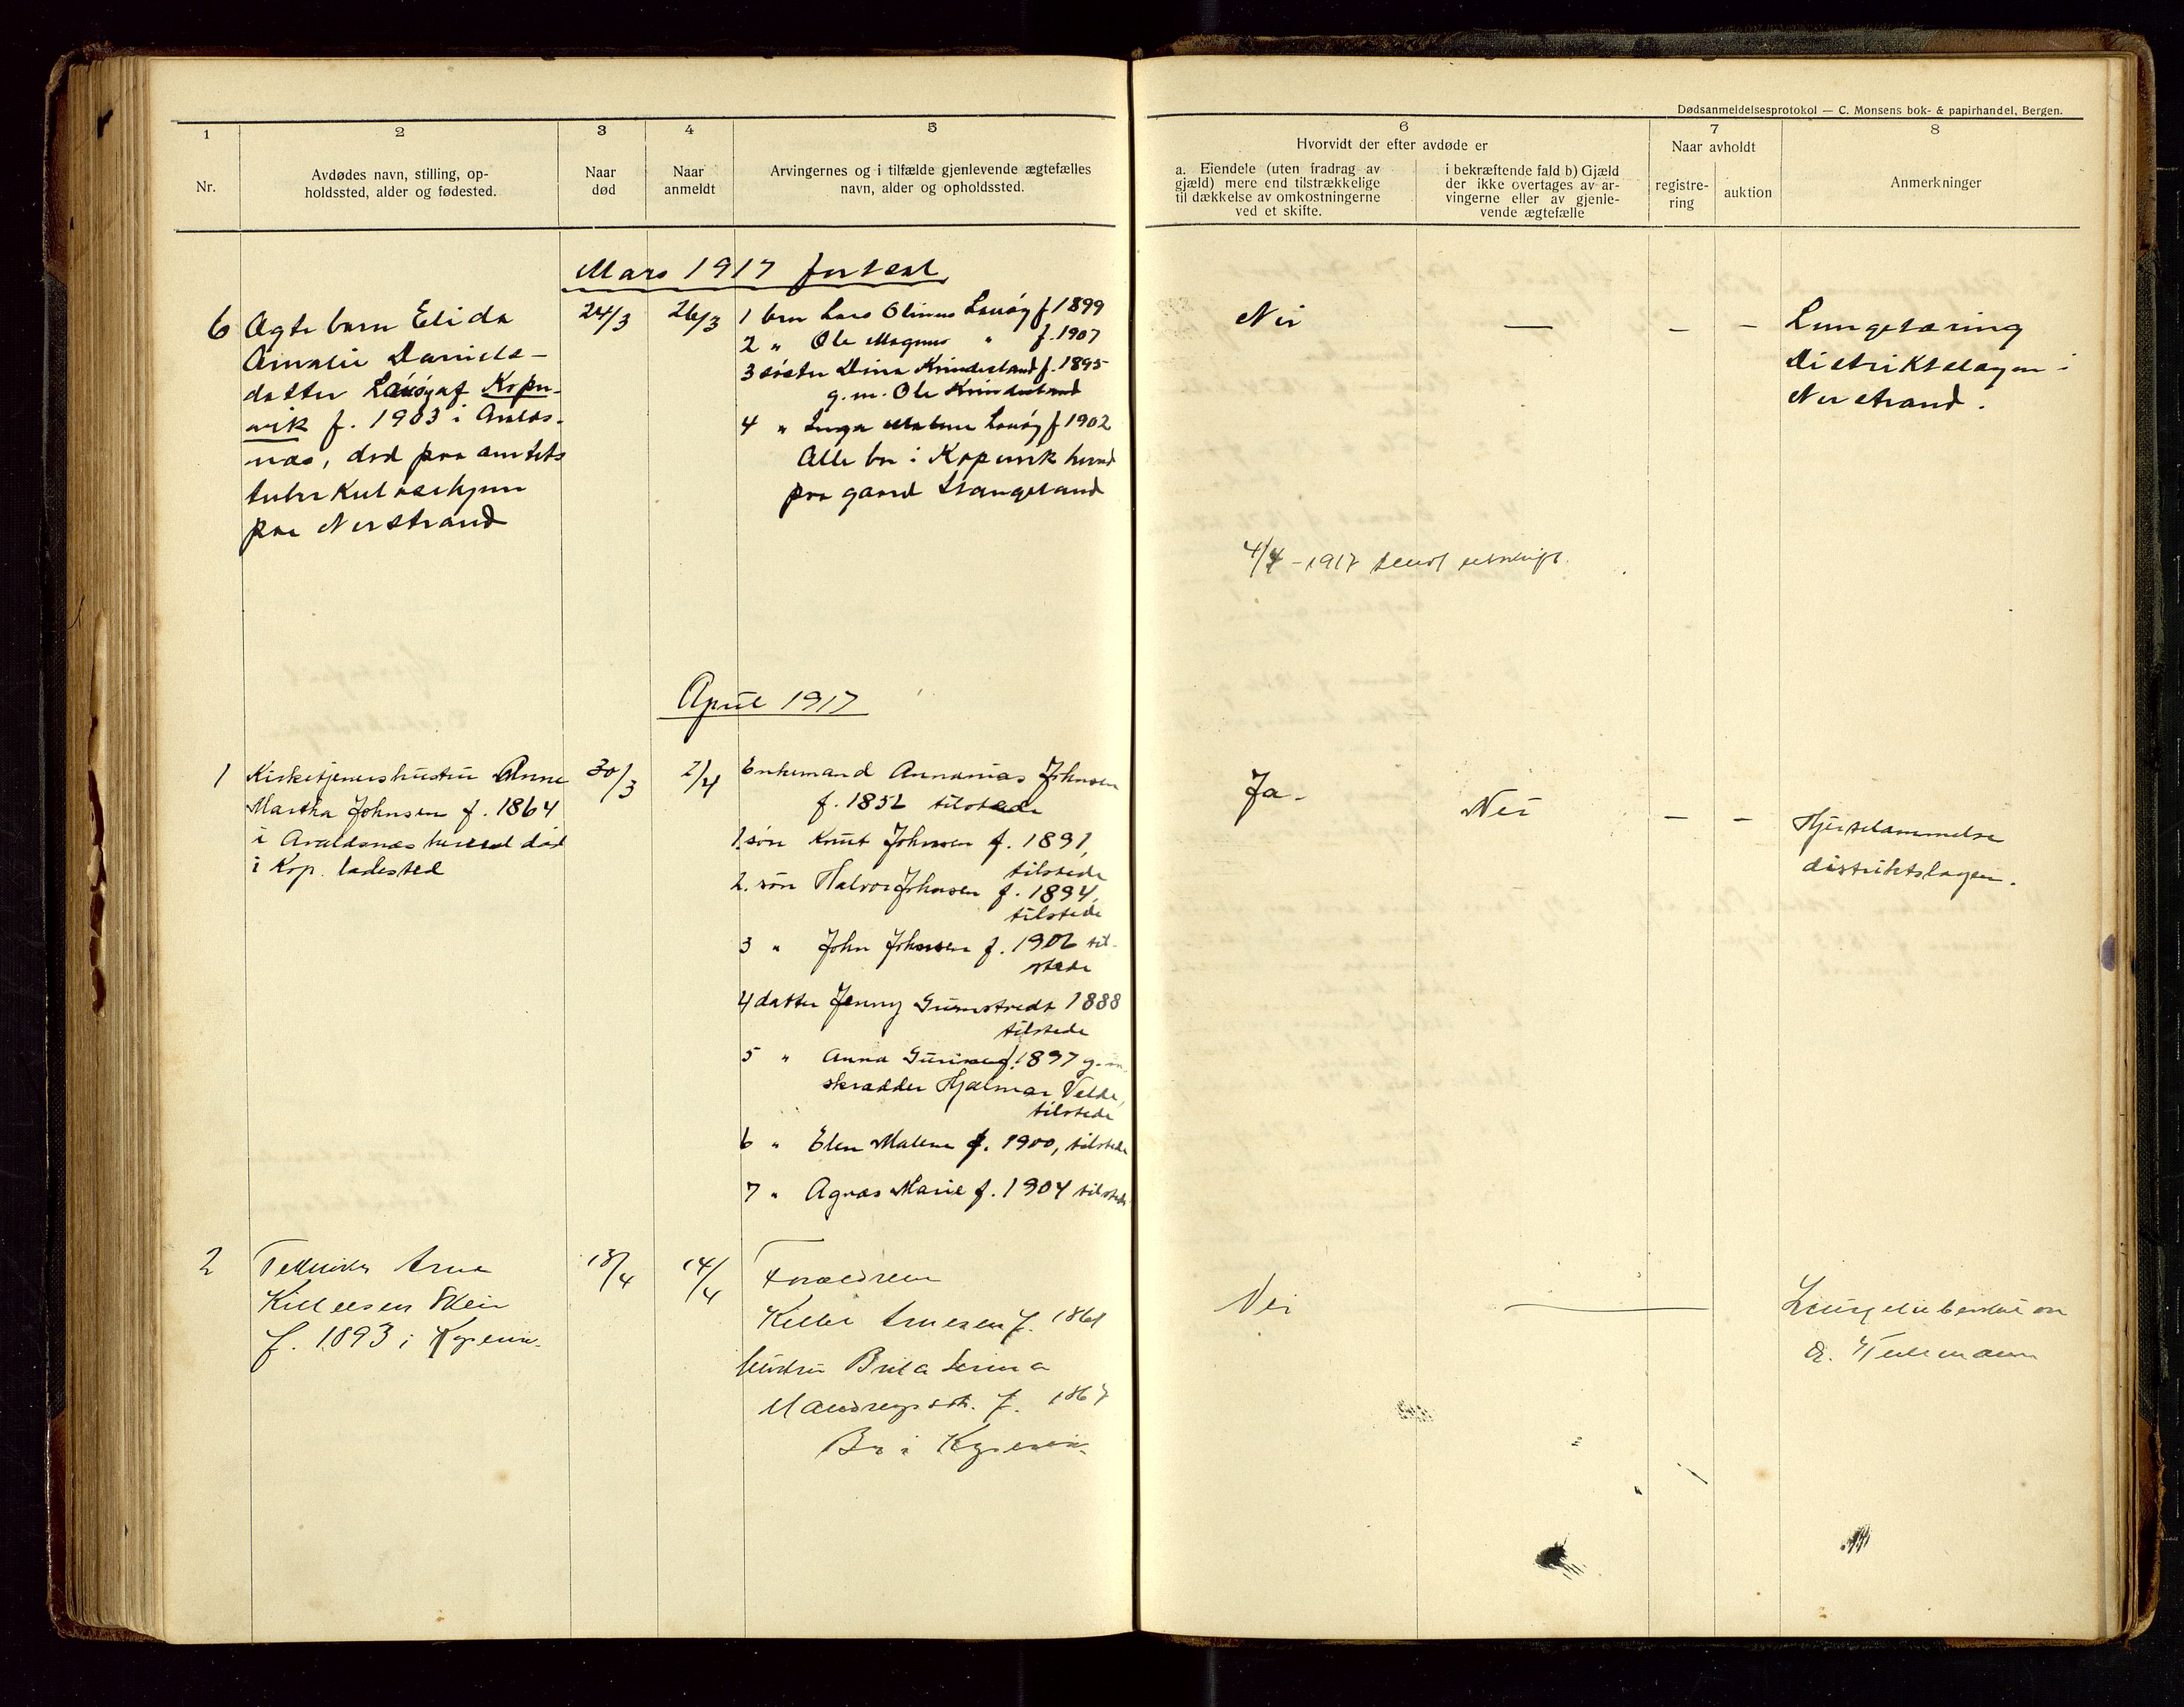 Dødsanmeldelsesprotokol — C. Monsens bok- & papirhandel, Bergen.
1
2
3
4
5
6
7
8
Nr.
Avdødes navn, stilling, op-
holdssted, alder og fødested.
Naar
død
Naar
anmeldt
Arvingernes og i tilfælde gjenlevende ægtefælles
navn, alder og opholdssted.
Hvorvidt der efter avdøde er
a. Eiendele (uten fradrag av
gjæld) mere end tilstrækkelige
til dækkelse av omkostningerne
ved et skifte.
i bekræftende fald b) Gjæld
der ikke overtages av ar-
vingerne eller av gjenle-
vende ægtefælle
Naar avholdt
registre-
ring
auktion
Anmerkninger
Mars 1917 fortsat
6 Ægtebarn Elida
Amalie Daniels-
datter Lauøy af Kopervik
f. 1903 i Avalds-
næs, død paa amtets
tuberkulosehjem
paa Nerstrand
24/3
26/3
1 bror Lars Olinus Lauøy f 1899
2 " Ole Magnus " f. 1907
3 søster Dina Kvinnesland f. 1895
g. m. Ole Kvinnesland
4 " Inga Malene Lauøy f 1902
Alle bor i Kopervik herred
paa gaard Stangeland
Nei
—
— —
Lungetæring
Distriktslægen i
Nerstrand.
4/4 - 1917 sendt utskrift.
April 1917
1 Kirketjenershustru Anne
Martha Johnsen f. 1864
i Avaldsnæs herred død
i Kop. ladested
30/3
2/4
Enkemand Annanias Johnsen
f. 1852 tilstede
1. søn Knut Johnsen f. 1891,
tilstede
2. søn Halvor Johnsen f. 1894,
tilstede
3 " John Johnsen f. 1902 til-
stede
4 datter Jenny 1888
tilstede
5 " Anna f. 1897 g. m.
skrædder Hjalmar Velde,
tilstede
6 " Elen Malene f. 1900, tilstede
7 " Agnes Marie f. 1904 tilstede
Ja.
Nei
— —
Hjertelammelse
distriktslægen.
2
Arne
f. 1893 i Kopervik
13/4
14/4
Forældrene
f. 1861
hustru Brita Serina
f. 1867
Bor i Kopervik
Nei
Lungetuberkulose